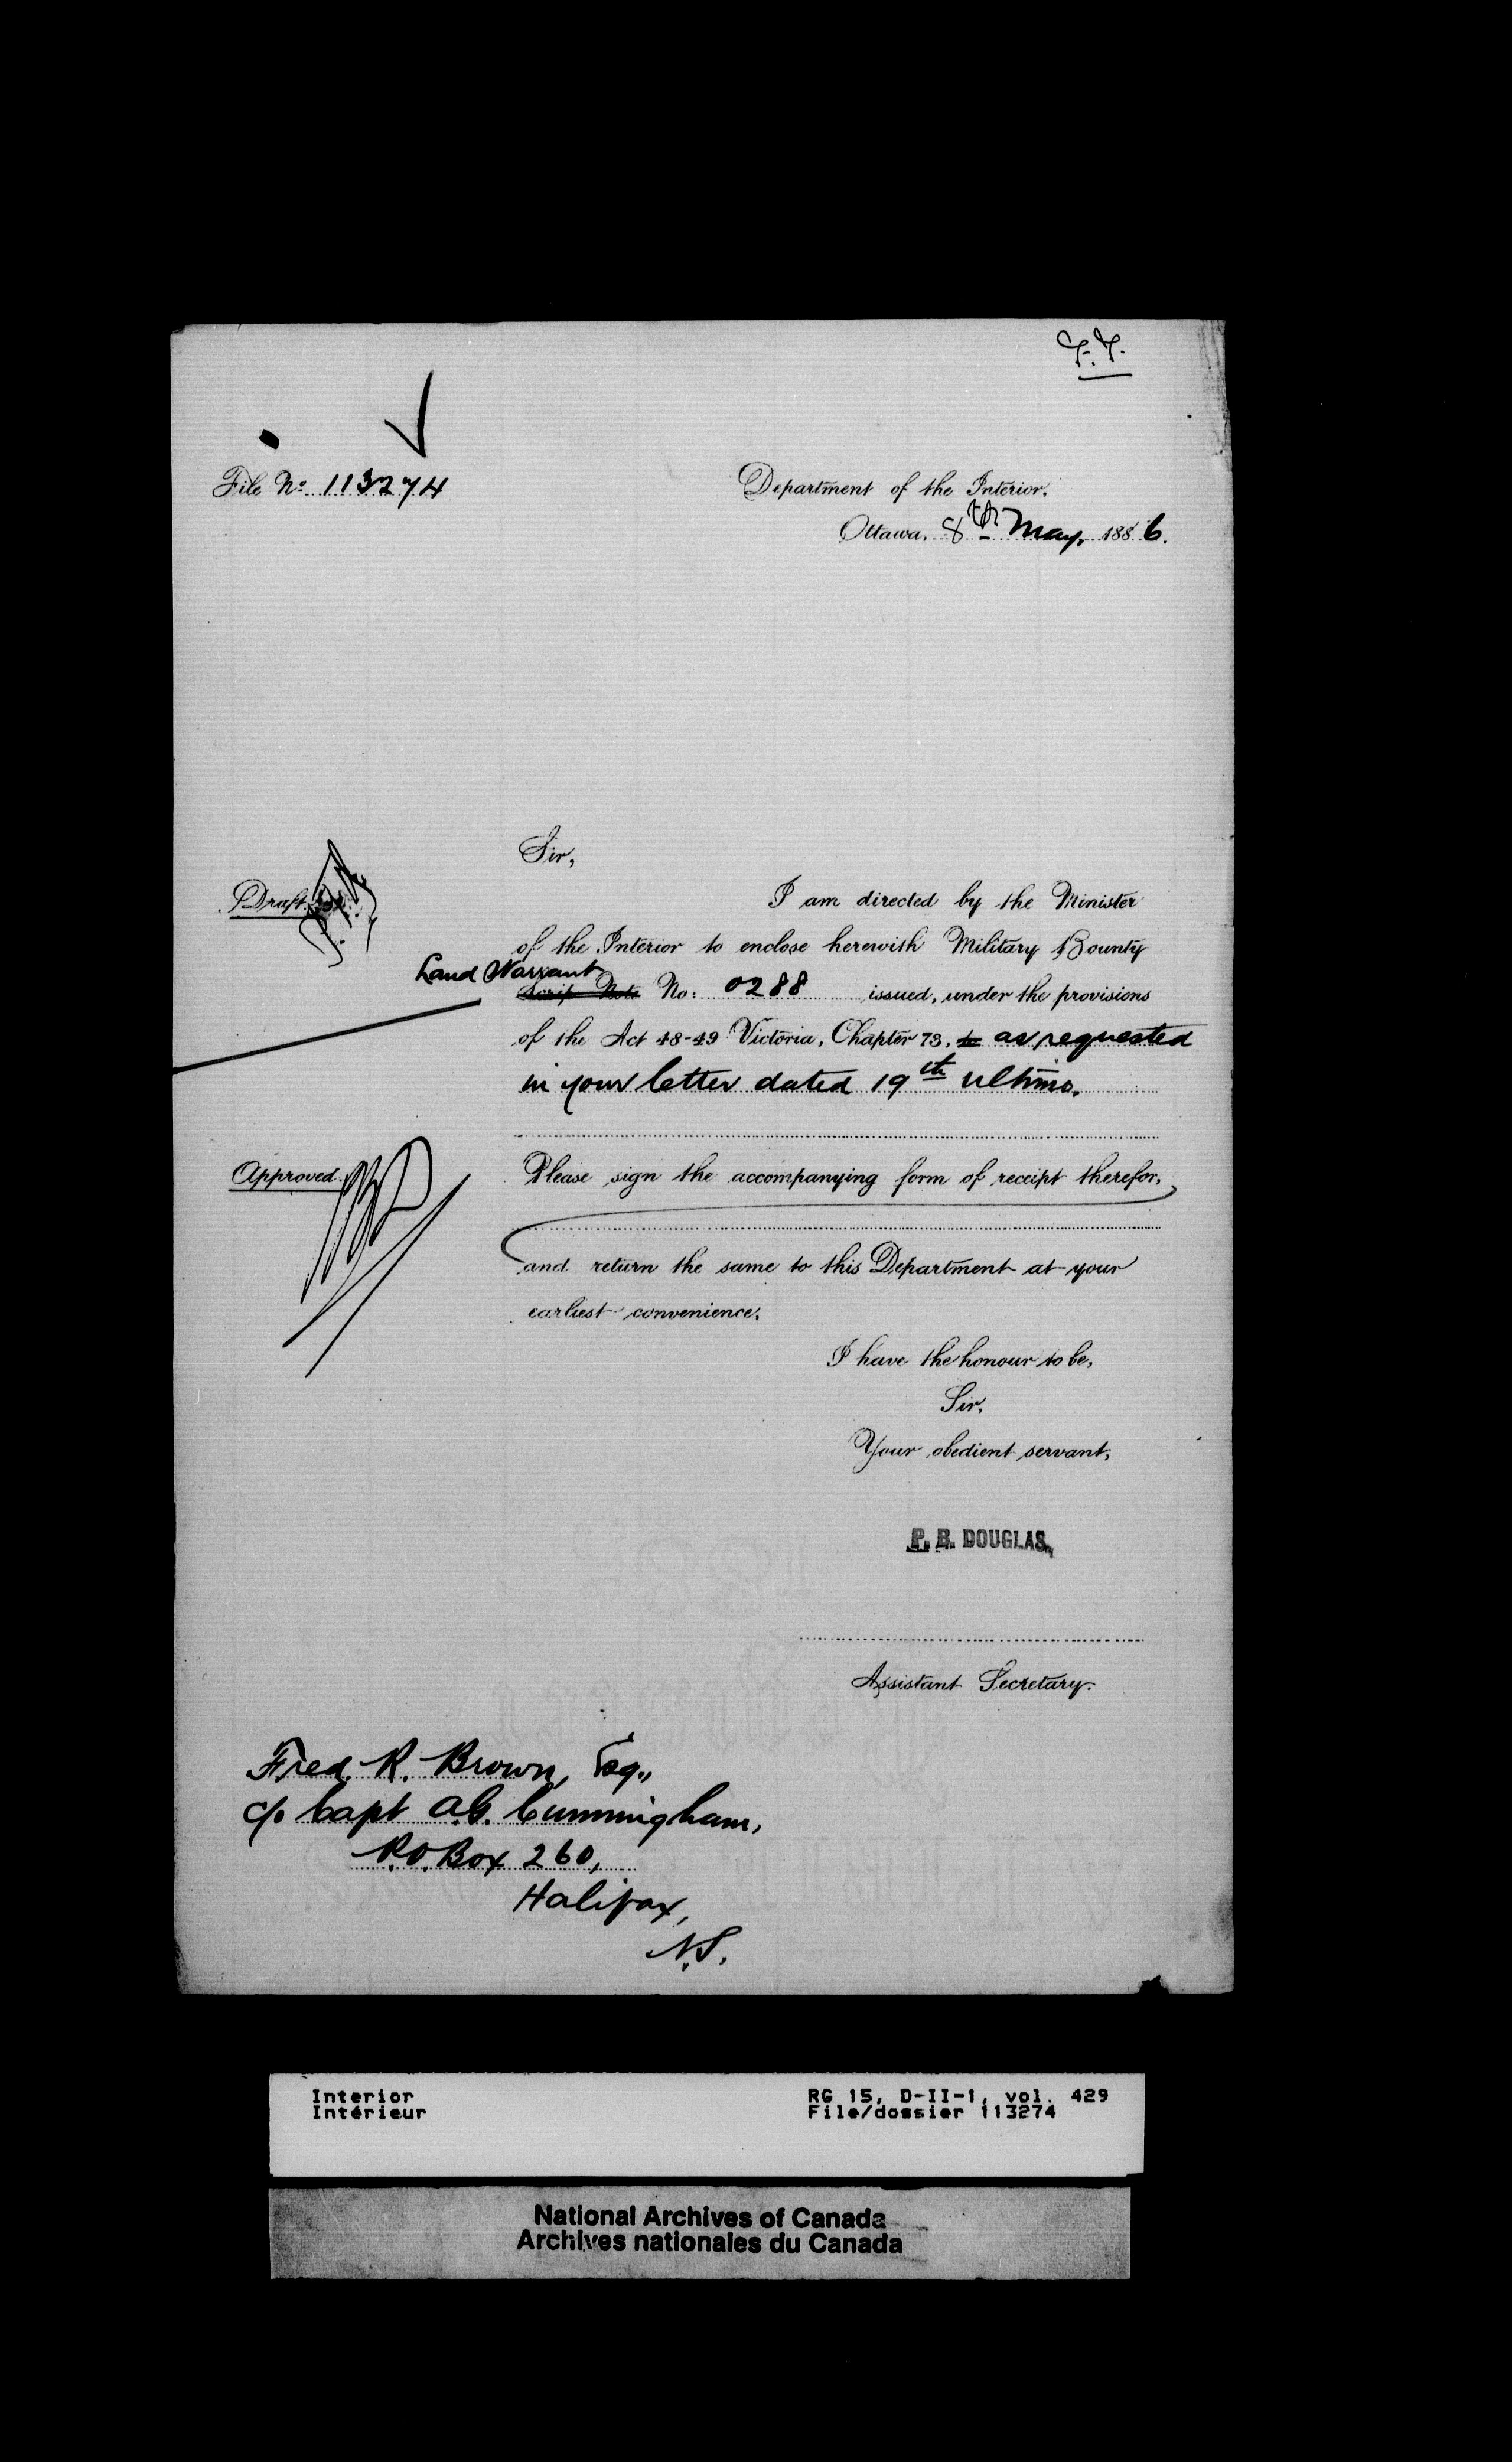 File No. 113274
Department of the Interior.
Ottawa, 8th May, 1886.
Sir,
Draft.
I am directed by the Minister
of the Interior to enclose herewith Military Bounty
Land Warrant
Scrip Note No: 0288 issued, under the provisions
of the Act 48-49 Victoria, Chapter 73, to as requested
in your letter dated 19th ultimo.
Approved.
Please sign the accompanying form of receipt therefor,
and return the same to this Department at your
earliest convenience.
I have the honour to be,
Sir,
Your obedient servant,
P. B. DOUGLAS,
Assistant Secretary.
Fred. R. Brown, Esq.,
c/o Capt A.G. Cunningham,
P.O. Box 260,
Halifax,
N.S.
Interior
Intérieur
RG 15, D-II-1, vol. 429
File/dossier 113274
National Archives of Canada
Archives nationales du Canada